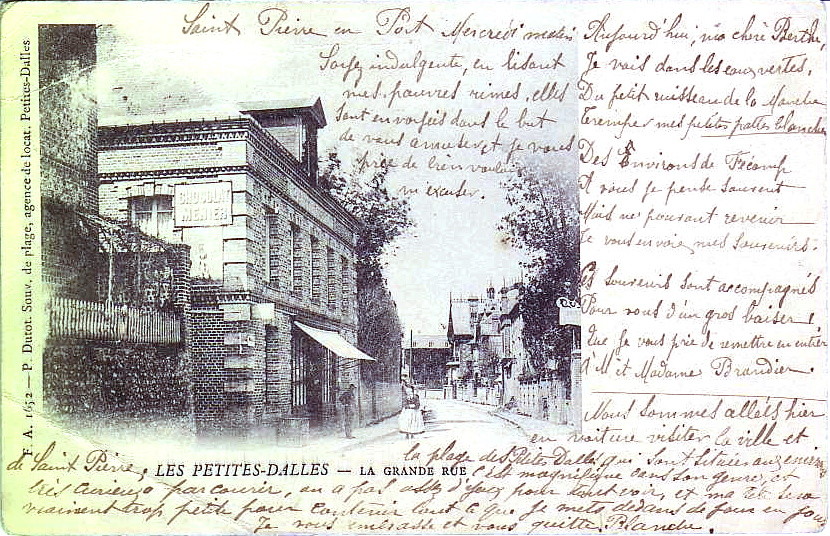 F. A. 1652 — P. Dutot. Souv. de plage, agence de locat. Petites-Dalles
Saint Pierre en Port Mercredi matin
Soyez indulgente, en lisant
mes pauvres rimes, elles
sont envoyées dans le but
de vous amuser, et je vous
prie de bien vouloir
m'excuser.
Aujourd'hui, ma chère Berthe,
Je vais dans les eaux vertes,
Du petit ruisseau de la Manche
Tremper mes petites pattes blanches
Des Environs de Fécamp
A vous je pense souvent
Mais ne pouvant revenir
Je vous envoie mes souvenirs.
Ces souvenirs sont accompagnés
Pour vous d'un gros baiser
Que je vous prie de remettre en entier
à M et Madame Brandier.
CHOCOLAT
MENIER
LES PETITES-DALLES — LA GRANDE RUE
Nous sommes allés hier
en voiture visiter la ville et
la plage des Petites Dalles qui sont situées aux environs
de Saint Pierre, C'est magnifique dans son genre, et
très curieux à parcourir, on a pas assez d'yeux pour tout voir, et ma tête sera
vraiment trop petite pour contenir tout ce que je mets dedans de jour en jour
Je vous embrasse et vous quitte. Blanche.